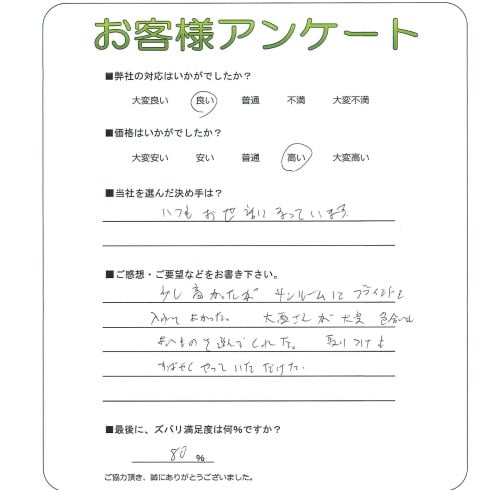 お客様アンケート
■弊社の対応はいかがでしたか？
大変良い 良い 普通 不満 大変不満
■価格はいかがでしたか？
大変安い 安い 普通 高い 大変高い
■当社を選んだ決め手は？
いつもお世話になっています。
■ご感想・ご要望などをお書き下さい。
少し高かったが サンルームにブラインドを
入れてよかった。 さんが大変 色合いの
よいものを選んでくれた。 取りつけも
すばやくやっていただけた。
■最後に、ズバリ満足度は何%ですか？
80 %
ご協力頂き、誠にありがとうございました。